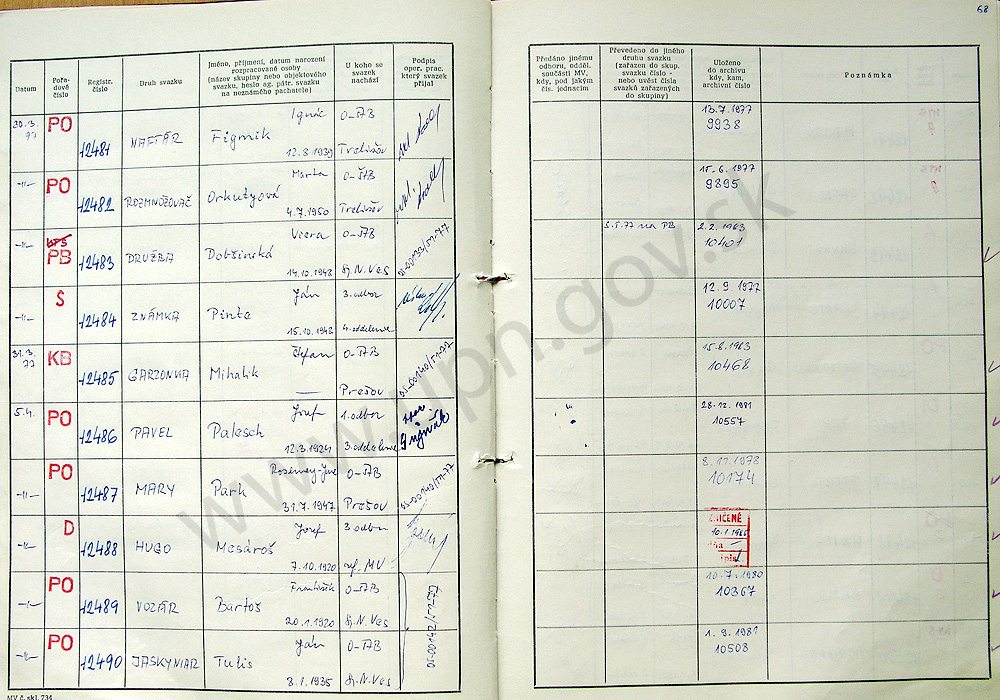 68
Datum
Pořa-
dové
číslo
Registr.
číslo
Druh svazku
Jméno, příjmení, datum narození
rozpracované osoby
(název skupiny nebo objektového
svazku, heslo ag. pátr. svazku
na neznámého pachatele)
U koho se
svazek
nachází
Podpis
oper. prac.
který svazek
přijal
Předáno jinému
odboru, odděl.
součásti MV,
kdy, pod jakým
čís. jednacím
Převedeno do jiného
druhu svazku
(zařazen do skup.
svazku číslo -
nebo uvést čísla
svazků zařazených
do skupiny)
Uloženo
do archivu
kdy, kam,
archivní číslo
Poznámka
30.3.
77 PO 12481 NAFTÁR Ignác Figmik 12.8.1939 O-ŠtB Trebišov
13.7.1977
9938
-"- PO 12482 ROZMNOŽOVAČ Marta Orkutyová 4.7.1950 O-ŠtB Trebišov
15.6.1977
9895
-"- PB 12483 DRUŽBA Viera Dobšinská 14.10.1948 O-ŠtB Sp.N.Ves
5.5.77 na PB
2.2.1983
10401
-"- Š 12484 ZNÁMKA Ján Pinte 15.10.1948 3.odbor 4.oddelenie
12.9.1977
10007
31.3.
77 KB 12485 GARZONKA Štefan Mihalik O-ŠtB Prešov
15.8.1983
10468
5.4. PO 12486 PAVEL Jozef Palesch 12.3.1924 1.odbor 3.oddelenie
28.12.1981
10557
-"- PO 12487 MARY Park 31.7.1947 O-ŠtB Prešov
8.11.1978
10174
-"- D 12488 HUGO Jozef Mesároš 7.10.1920 3.odbor ref.MV
ZNIČENÉ
-"- PO 12489 VOZÁR František Bartoš 20.1.1920 O-ŠtB Sp.N.Ves
10.7.1980
10367
-"- PO 12490 JASKYNIAR Ján Tulis 8.1.1935 O-ŠtB Sp.N.Ves
1.9.1981
10508
MV č. skl. 734
www.upn.gov.sk